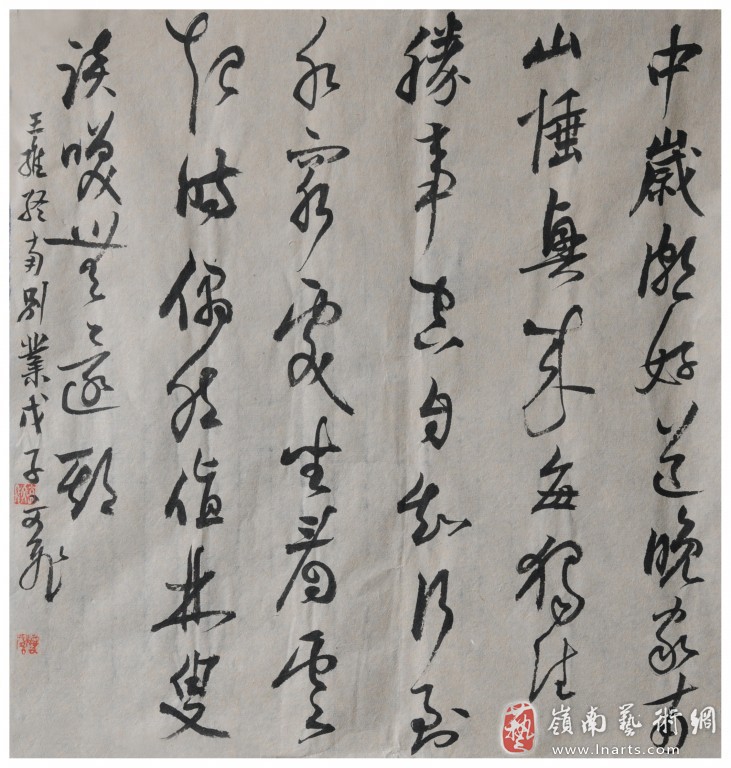 中歲頗好道晚家南
山陲興來每獨往
勝事空自知行到
水窮處坐看雲
起時偶然值林叟
談咲無還期
王維終南別業戊子可飛
嶺南藝術網
www.lnarts.com